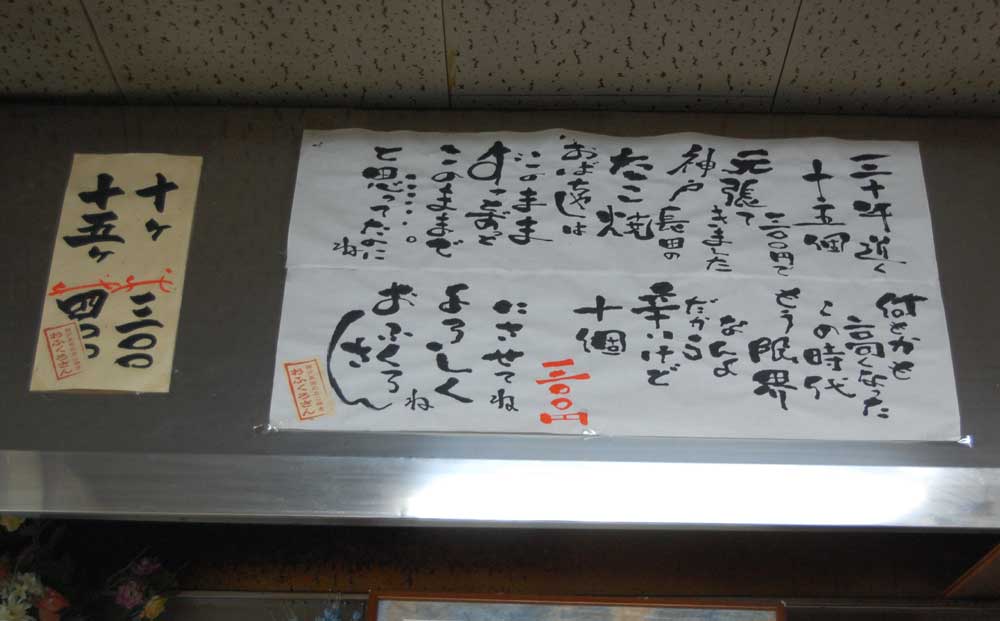 三十年近く
十五個
三〇〇円で
元張て
きました
神戸長田の
たこ焼
おばちゃんは
このまま
ずっとずっと
このままで
・・・・・。
と思ってたのに
ね
何もかも
高くなった
この時代
もう限界
なんよ
だから
辛いけど
十個
三〇〇円
にさせてね
よろしくね
おふくろ
さん
おふくろさん
十ヶ 三〇〇
十五ヶ 四〇〇
おふくろさん